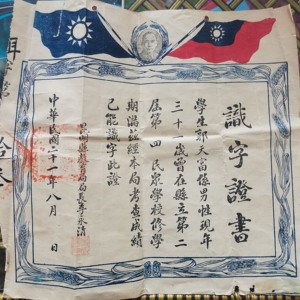 識字證書
學生郭天富係男性現年
三十一歲曾在縣立第二
屆第四民眾學校修學
期滿茲經本局考查成績
已能識字此證
局長李永清
中華民國二十一年八月 日